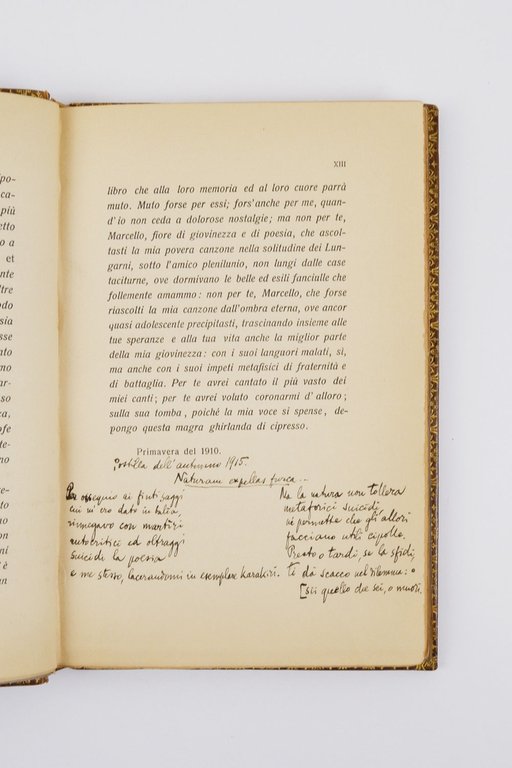 po-
ca-
più
etto
o a
et
ente
ltre
sia
nto
ar-
za,
te-
no
in
un
ni
'è
o
XIII
libro che alla loro memoria ed al loro cuore parrà
muto. Muto forse per essi; fors'anche per me, quan-
d'io non ceda a dolorose nostalgie; ma non per te,
Marcello, fiore di giovinezza e di poesia, che ascol-
tasti la mia povera canzone nella solitudine dei Lun-
garni, sotto l'amico plenilunio, non lungi dalle case
taciturne, ove dormivano le belle ed esili fanciulle che
follemente amammo: non per te, Marcello, che forse
riascolti la mia canzone dall'ombra eterna, ove ancor
quasi adolescente precipitasti, trascinando insieme alle
tue speranze e alla tua vita anche la miglior parte
della mia giovinezza: con i suoi languori malati, sì,
ma anche con i suoi impeti metafisici di fraternità e
di battaglia. Per te avrei cantato il più vasto dei
miei canti; per te avrei voluto coronarmi d'alloro;
sulla sua tomba, poiché la mia voce si spense, de-
pongo questa magra ghirlanda di cipresso.
Primavera del 1910.
Postilla dell'autunno 1915.
Naturam expellas furca...
Per ossequio ai finti saggi
cui m'ero dato in balìa,
rinnegavo con martìri
autocritici ed oltraggi
suicide la poesia
e me stesso, lacerandomi in esemplare karakiri.
Ma la natura non tollera
metaforici suicidi,
né permette che gli allori
facciano utili cipolle.
Presto o tardi, se la sfidi,
ti dà scacco nel dilemma: o
[sii quello che sei, o muori.